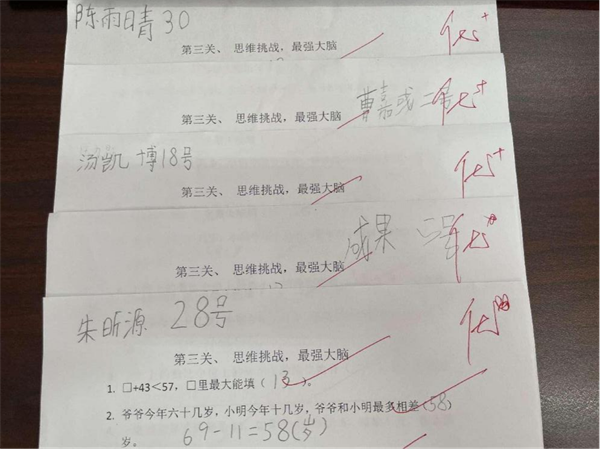 陈雨晴 30
优+
第三关、 思维挑战，最强大脑
曹嘉彧 二号
优+
第三关、 思维挑战，最强大脑
汤凯博18号
优+
第三关、 思维挑战，最强大脑
成果
优
第三关、 思维挑战，最强大脑
朱昕源 28号
优
第三关、 思维挑战，最强大脑
1. □+43＜57，□里最大能填（13）。
2. 爷爷今年六十几岁，小明今年十几岁，爷爷和小明最多相差（58）
岁。 69-11=58(岁)